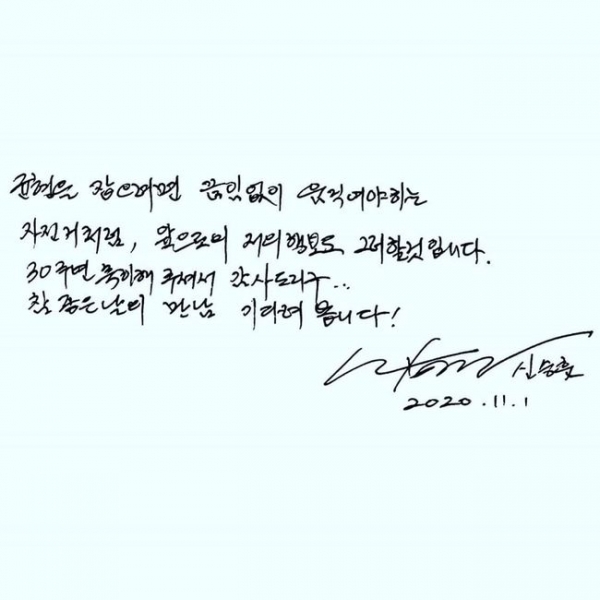 균형을 잡으려면 끊임없이 움직여야하는
자전거처럼, 앞으로의 저의행보도 그러할것입니다.
30주년 축하해 주셔서 감사드리구..
참 좋은날의 만남 기다려 봅니다!
신승훈
2020.11.1